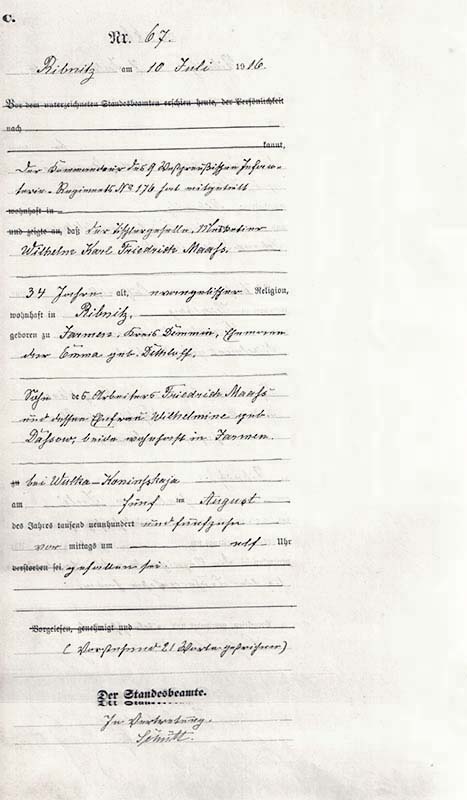 C.
Nr. 67.
Ribnitz am 10 Juli 1916.
Vor dem unterzeichneten Standesbeamten erschien heute, der Persönlichkeit
nach
kannt,
Der Kommandeur des 9 Westpreußischen Infan-
terie-Regiments No 176 hat mitgeteilt
wohnhaft in
und zeigte an, daß der Tischlergeselle, Musketier
Wilhelm Karl Friedrich Maahs,
34 Jahre alt, evangelischer Religion,
wohnhaft in Ribnitz,
geboren zu Jarmen, Kreis Demmin, Ehemann
der Emma geb.
Sohn des Arbeiters Friedrich Maahs
und dessen Ehefrau Wilhelmine geb.
beide wohnhaft in Jarmen.
zu bei Wulka-
am fünf ten August
des Jahres tausend neunhundert und fünfzehn
vor mittags um elf Uhr
verstorben sei. gefallen sei.
Vorgelesen, genehmigt und
(Vorstehend 21 Worte gestrichen)
Der Standesbeamte.
In Vertretung.
Schütt.